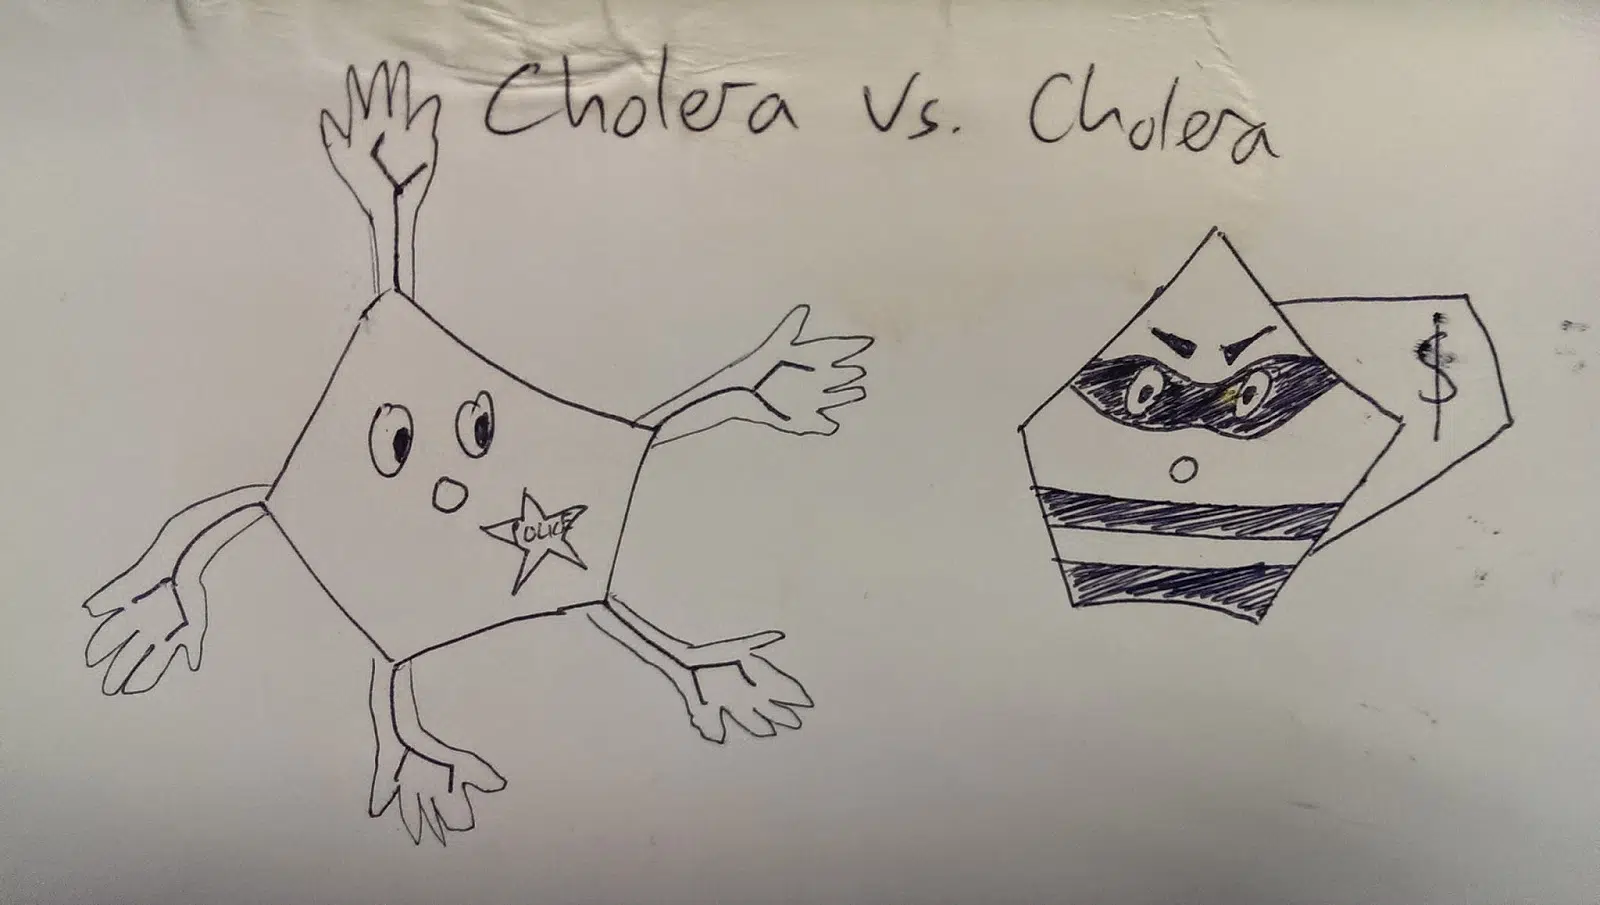 Cholera vs. Cholera
$
POLICE